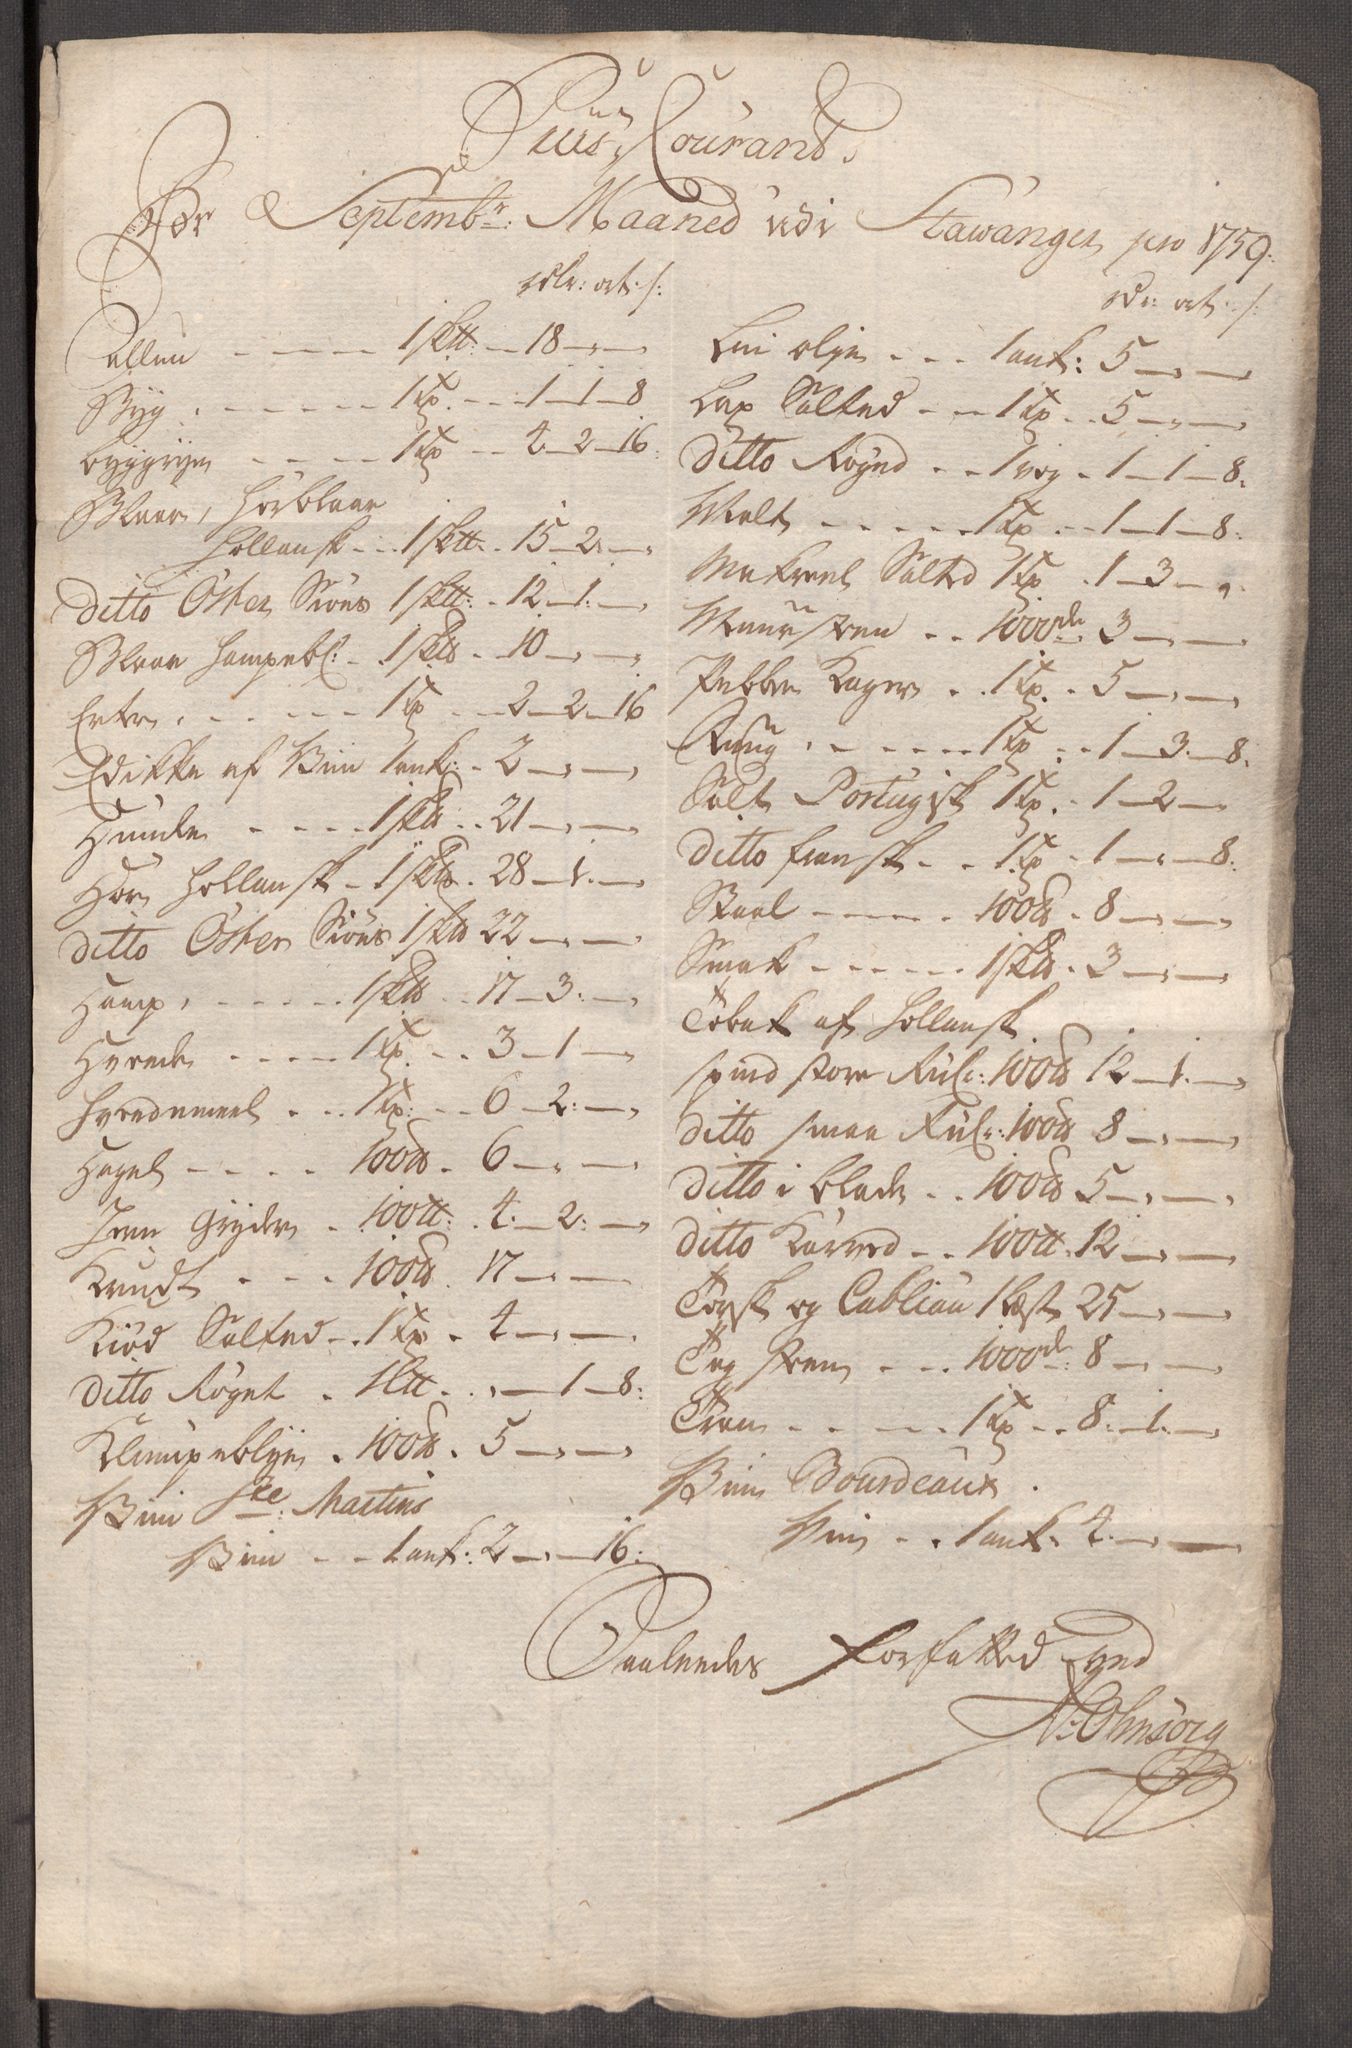 Priis Courant
For Septembr: Maaned udi Stawanger pro 1759.
rdlr: ort: s:
Allun - - - - 1 skt: - 18 - " - "
Byg . - - - - - 1 Tø. - - - 1 - 1 - 8
byggryn - - - - 1 Tø - - 4 - 2 - 16
Blaar, Hørblaar
Hollansk - - - 1 skt: - 15 - 2 - "
ditto Øster Siøes 1 skt: - 12 - 1: - "
Blaar Hampebl: - . 1 sk℔ - 10 - " - "
Erter . - - - - - 1 Tø - - - 2 - 2 - 16
Edikke af Viin 1 ank: - 2 - " - "
Humle - - - - 1 sk℔ - - 21 - " - "
Hør Hollansk - 1 sk℔ - 28 - 1. - "
ditto Øster Siøes 1 sk℔ 22 - " - "
Hamp . - - - - - 1 sk℔ - - 17 - 3: - "
Hvede - - - - 1 Tø. - - 3 - 1 - "
Hvedemeel - - - 1 Tø: - - 6 - 2: - "
Hagel - - - - 100 ℔ - 6 - " - "
Jern Gryder - 100 ℔: - 4: - 2: - "
Krudt - - - 100 ℔ - 17 - " - "
Kiød Salted - . 1 Tø - 4 - " - "
ditto Røget - 1 L℔ - . " - 1 - 8:
Klumpeblye - 100 ℔ - 5 - " - "
Viin Ste: Martins
Viin - - 1 ank: 2 - " - 16:
rdr: ort. s:
Lin olye - - - 1 ank: 5 - " - "
Lax Salted - - 1 Tø - - 5 - " - "
ditto Røged - - 1 vog - 1 - 1 - 8.
Malt - - - - - 1 Tø - - 1 - 1 - 8.
Makreel Salted 1 Tø - 1 - 3 - "
Muursten - - 1000de 3 - " - "
Pebber Kager - . 1 Tø. - 5 - " - "
Rug . - - - - - 1 Tø - - 1 - 3 - 8.
Salt Portugisk 1 Tø. - 1 - 2 - "
ditto fransk - - 1 Tø - 1 - " - 8:
Staal - - - - - 100 ℔ - 8 - " - "
Smak - - - - - 1 sk℔ - 3 - " - "
Tobak af Hollansk
spind store Rul: 100 ℔ 12 - 1. - "
ditto smaa Rul: 100 ℔ 8 - " - "
ditto i blade - - 100 ℔ 5 - " - "
ditto Karved - - 100 ℔ - 12 - " - "
Torsk og Cabliau 1 Læst 25 - " - "
Tag steen - - - 1000de: 8 - " - "
Tran - - - - - 1 Tø - - 8 - 1. - "
Viin Bourdeaux
Viin - - 1 ank: 4. - " - "
Saaledes forfatted ved
Ohnsorg